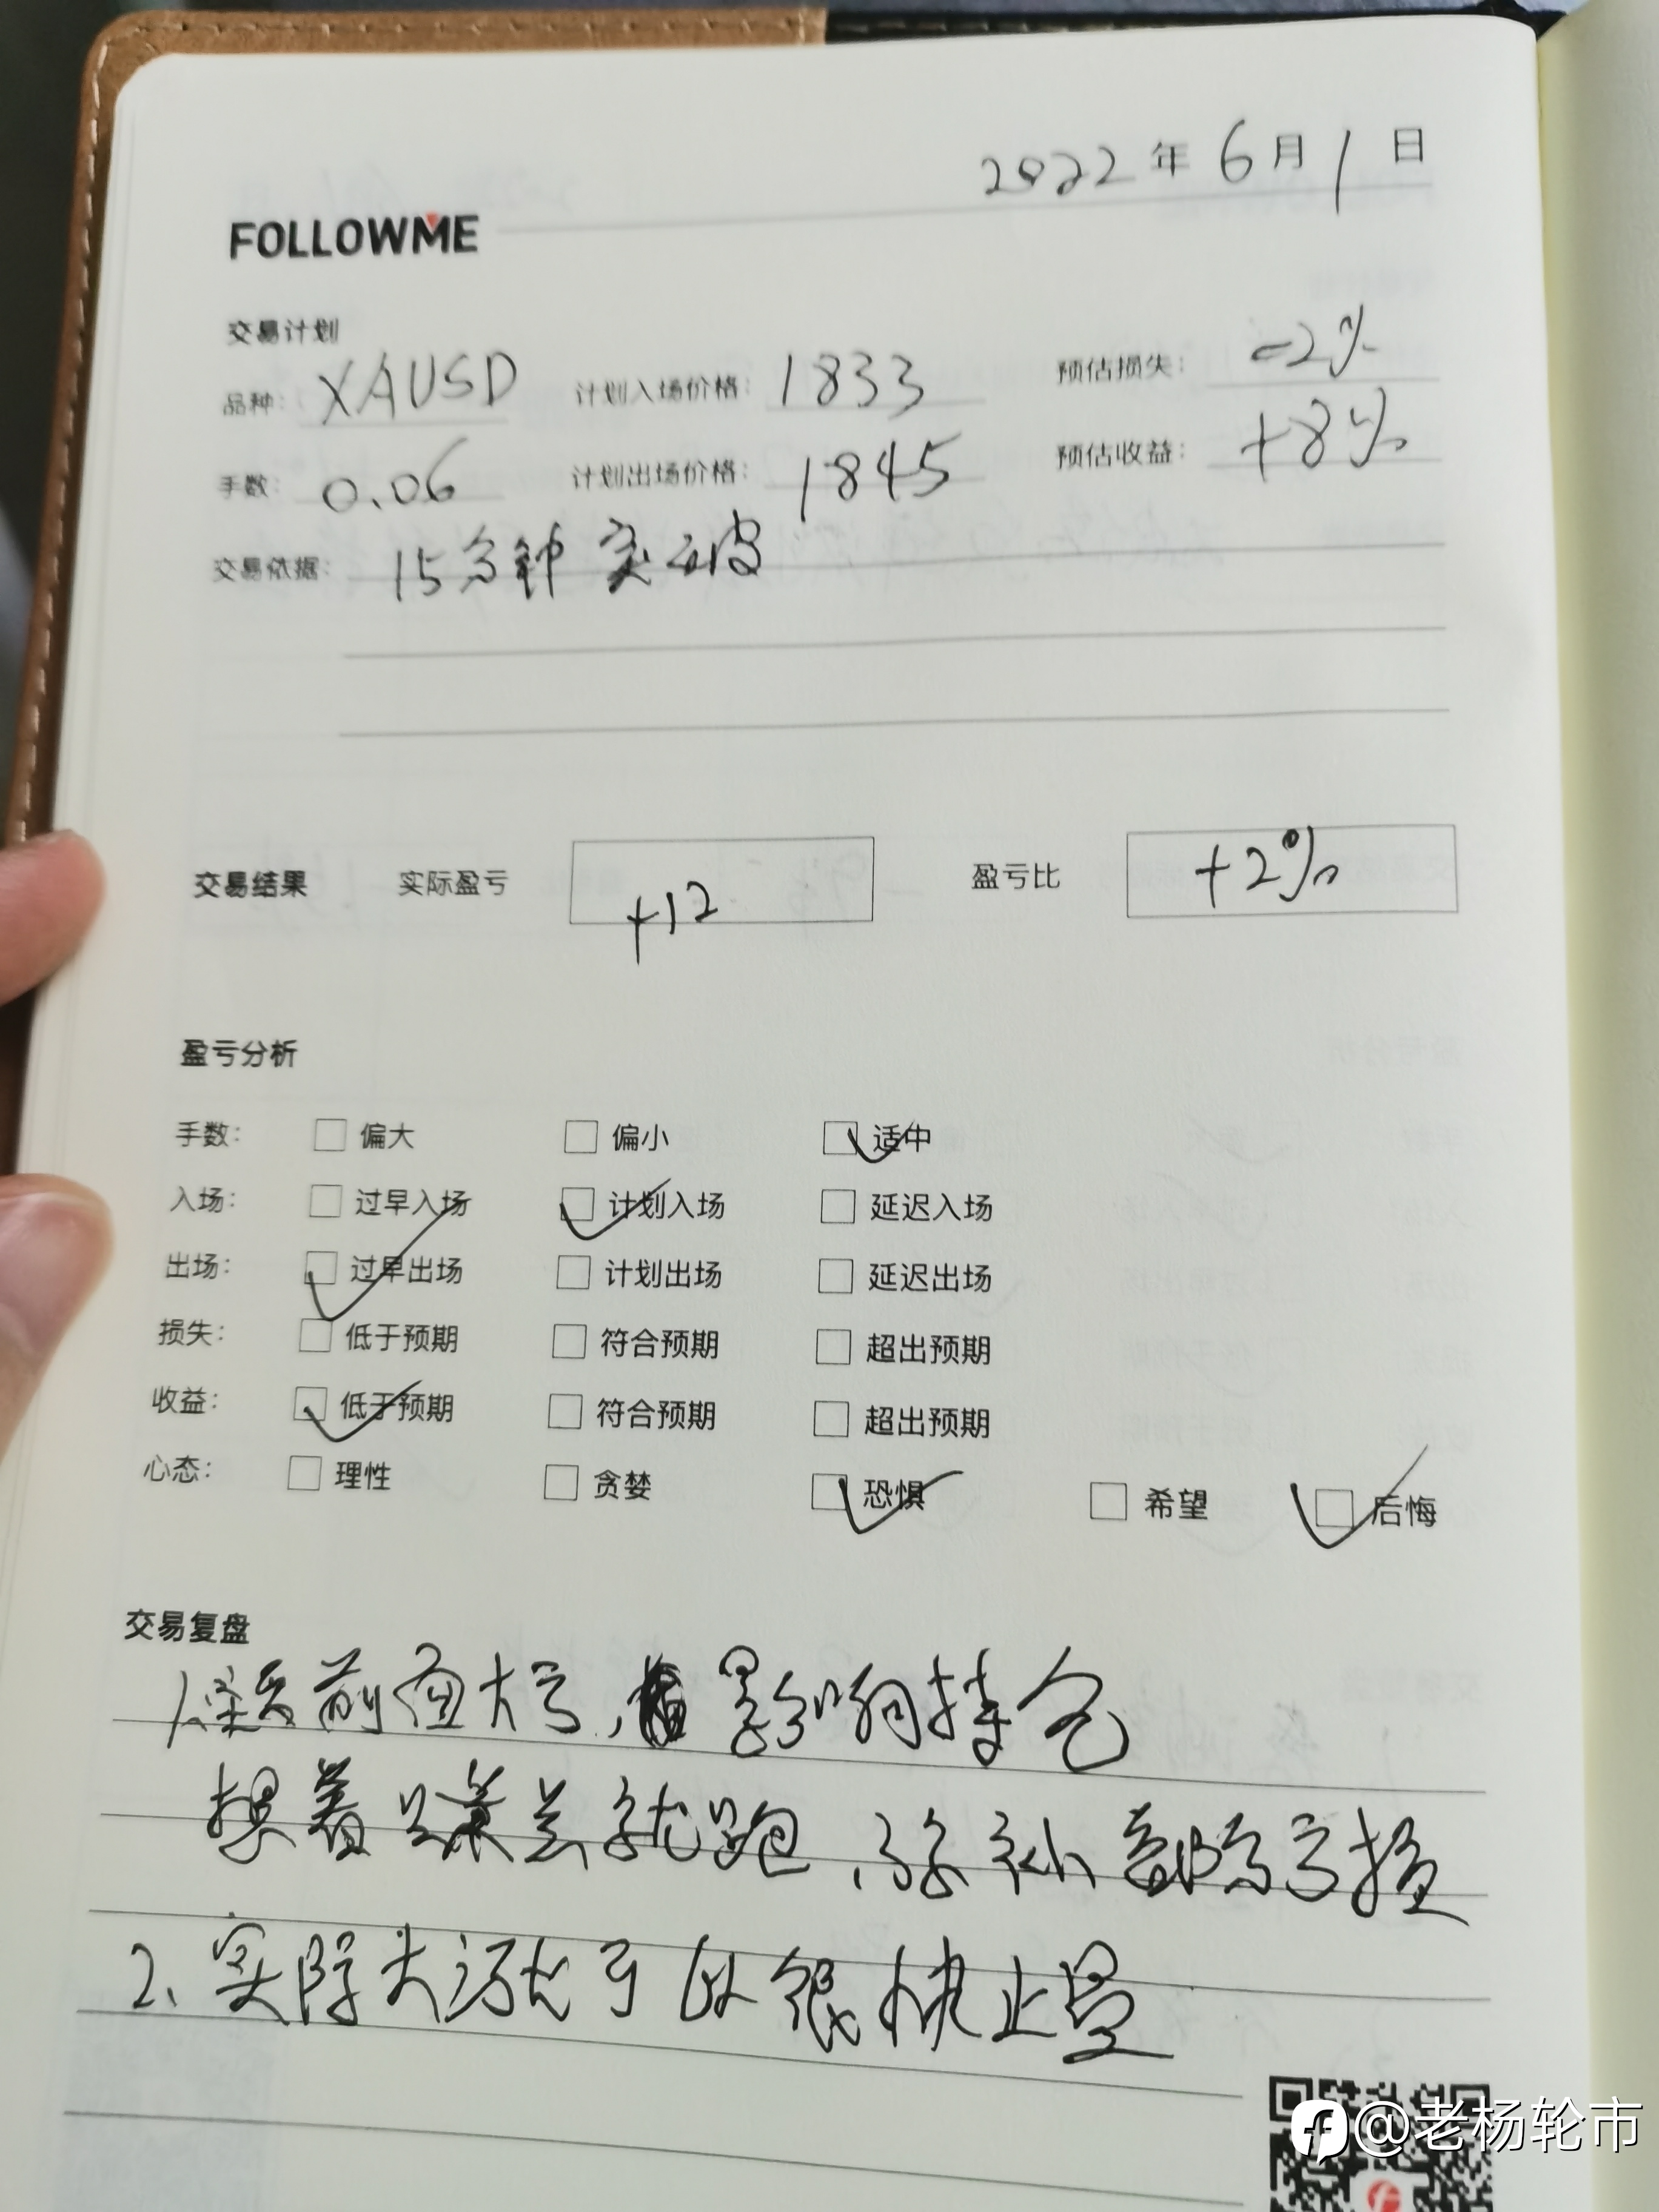 2022年6月1日
FOLLOWME
交易计划
品种: XAUSD 计划入场价格: 1833 预估损失: -2%
手数: 0.06 计划出场价格: 1845 预估收益: +8%
交易依据: 15分钟
交易结果 实际盈亏 +12 盈亏比 +2%
盈亏分析
手数: 偏大 偏小 适中
入场: 过早入场 计划入场 延迟入场
出场: 过早出场 计划出场 延迟出场
损失: 低于预期 符合预期 超出预期
收益: 低于预期 符合预期 超出预期
心态: 理性 贪婪 恐惧 希望 后悔
交易复盘
1. 前面大亏 影响持仓
想着赚点就跑, 弥补部分亏损
2、实际大 可以很快止盈
@老杨轮市